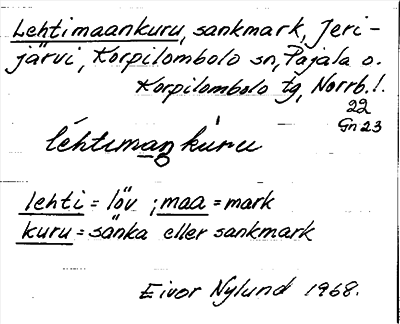 Lehtimaankuru, sankmark, Jeri-
järvi, Korpilombolo sn, Pajala o.
Korpilombolo tg, Norrb. l.
22
Gn 23
léhtimaŋkùru
lehti = löv ; maa = mark
kuru = sänka eller sankmark
Eivor Nylund 1968.